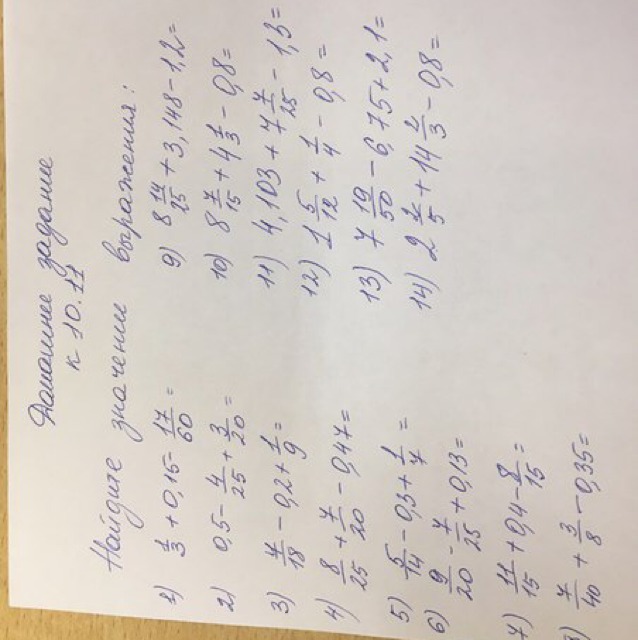 Домашнее задание
к 10.11
Найдите значение выражения:
1) 1/3 + 0,15 - 17/60 =
2) 0,5 - 4/25 + 3/20 =
3) 7/18 - 0,2 + 1/9 =
4) 8/25 + 7/20 - 0,47 =
5) 5/14 - 0,3 + 1/7 =
6) 9/20 - 7/25 + 0,13 =
7) 11/15 + 0,4 - 8/15 =
7/40 + 3/8 - 0,35 =
9) 8 14/25 + 3,148 - 1,2 =
10) 8 7/15 + 4 1/3 - 0,8 =
11) 4,103 + 7 7/25 - 1,3 =
12) 1 5/12 + 1/4 - 0,8 =
13) 7 19/50 - 6,75 + 2,1 =
14) 2 2/5 + 14 2/3 - 0,8 =